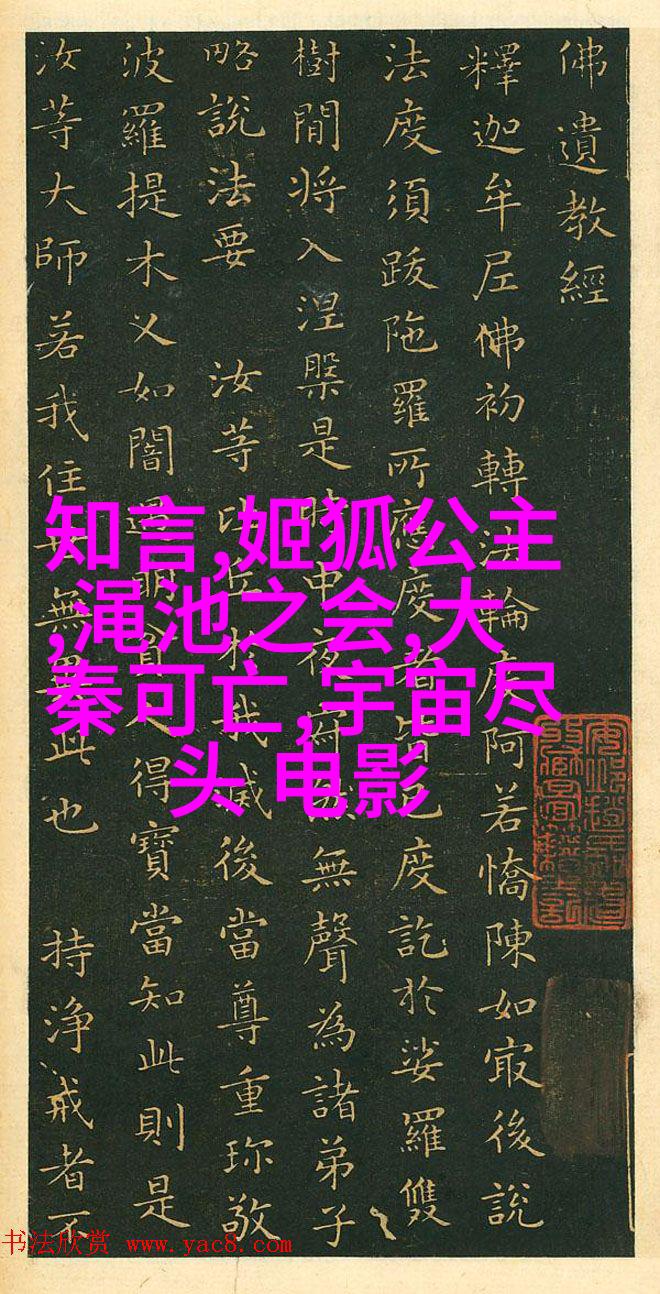 佛遺教經
釋迦牟尼佛初轉法輪度阿若憍陳如冣後說
法度須跋陁羅所應度者皆已度訖於娑羅雙
樹間將入涅槃是時中夜寂然無聲為諸弟子
略說法要 汝等比丘於我滅後當尊重珎敬
波羅提木乂如闇遇明貧人得寶當知此則是
汝等大師若我住世無異此也 持淨戒者不
知言,姬狐公主
,渑池之会,大
秦可亡,宇宙尽
头 电影
书法欣赏 www.yac8.com